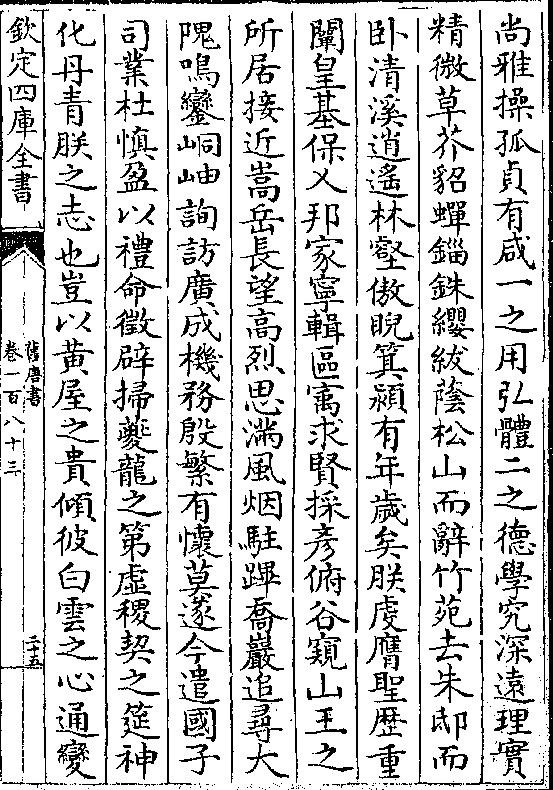 尚雅操孤貞有咸一之用弘體二之德學究深遠理實
精微草芥貂蟬錙銖纓紱蔭松山而辭竹苑去朱邸而
卧清溪逍遙林壑傲睨箕潁有年歲矣朕虔膺聖歷重
闡皇基保乂邦家寧輯區寓求賢採彦俯谷窺山王之
所居接近嵩岳長望高烈思滿風烟駐蹕喬巖追尋大
隗鳴鑾峒岫詢訪廣成機務殷繁有懷莫遂今遣國子
司業杜慎盈以禮命徵辟掃夔龍之第虚稷契之筵神
化丹青朕之志也豈以黄屋之貴傾彼白雲之心通變
欽定四庫全書
舊唐書
卷一百八十三
二十五